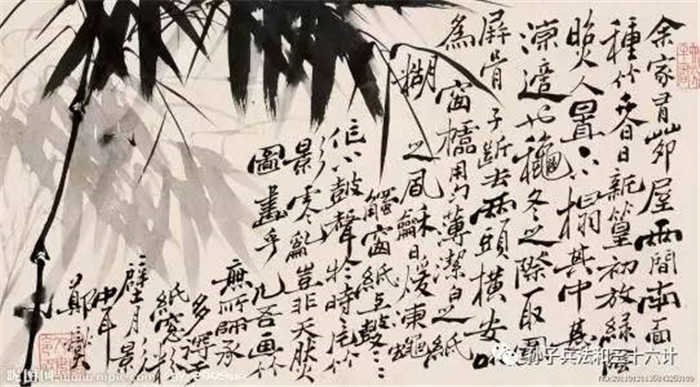 余家有茆屋兩間南面
種竹夏日新篁初放綠蔭
照人置一小榻其中甚
涼適也穐冬之際取圍
屏骨子斷去兩頭橫安以
為窗櫺用勻薄潔白之紙
糊之風龢日煖凍蠅
觸窗紙上鼕鼕
作小鼓聲於時一片竹
影零亂豈非天然
圖畫乎凡吾畫竹
無所師承
多得於
紙窗粉
壁月影
中耳
鄭燮
孙子兵法和三十六计